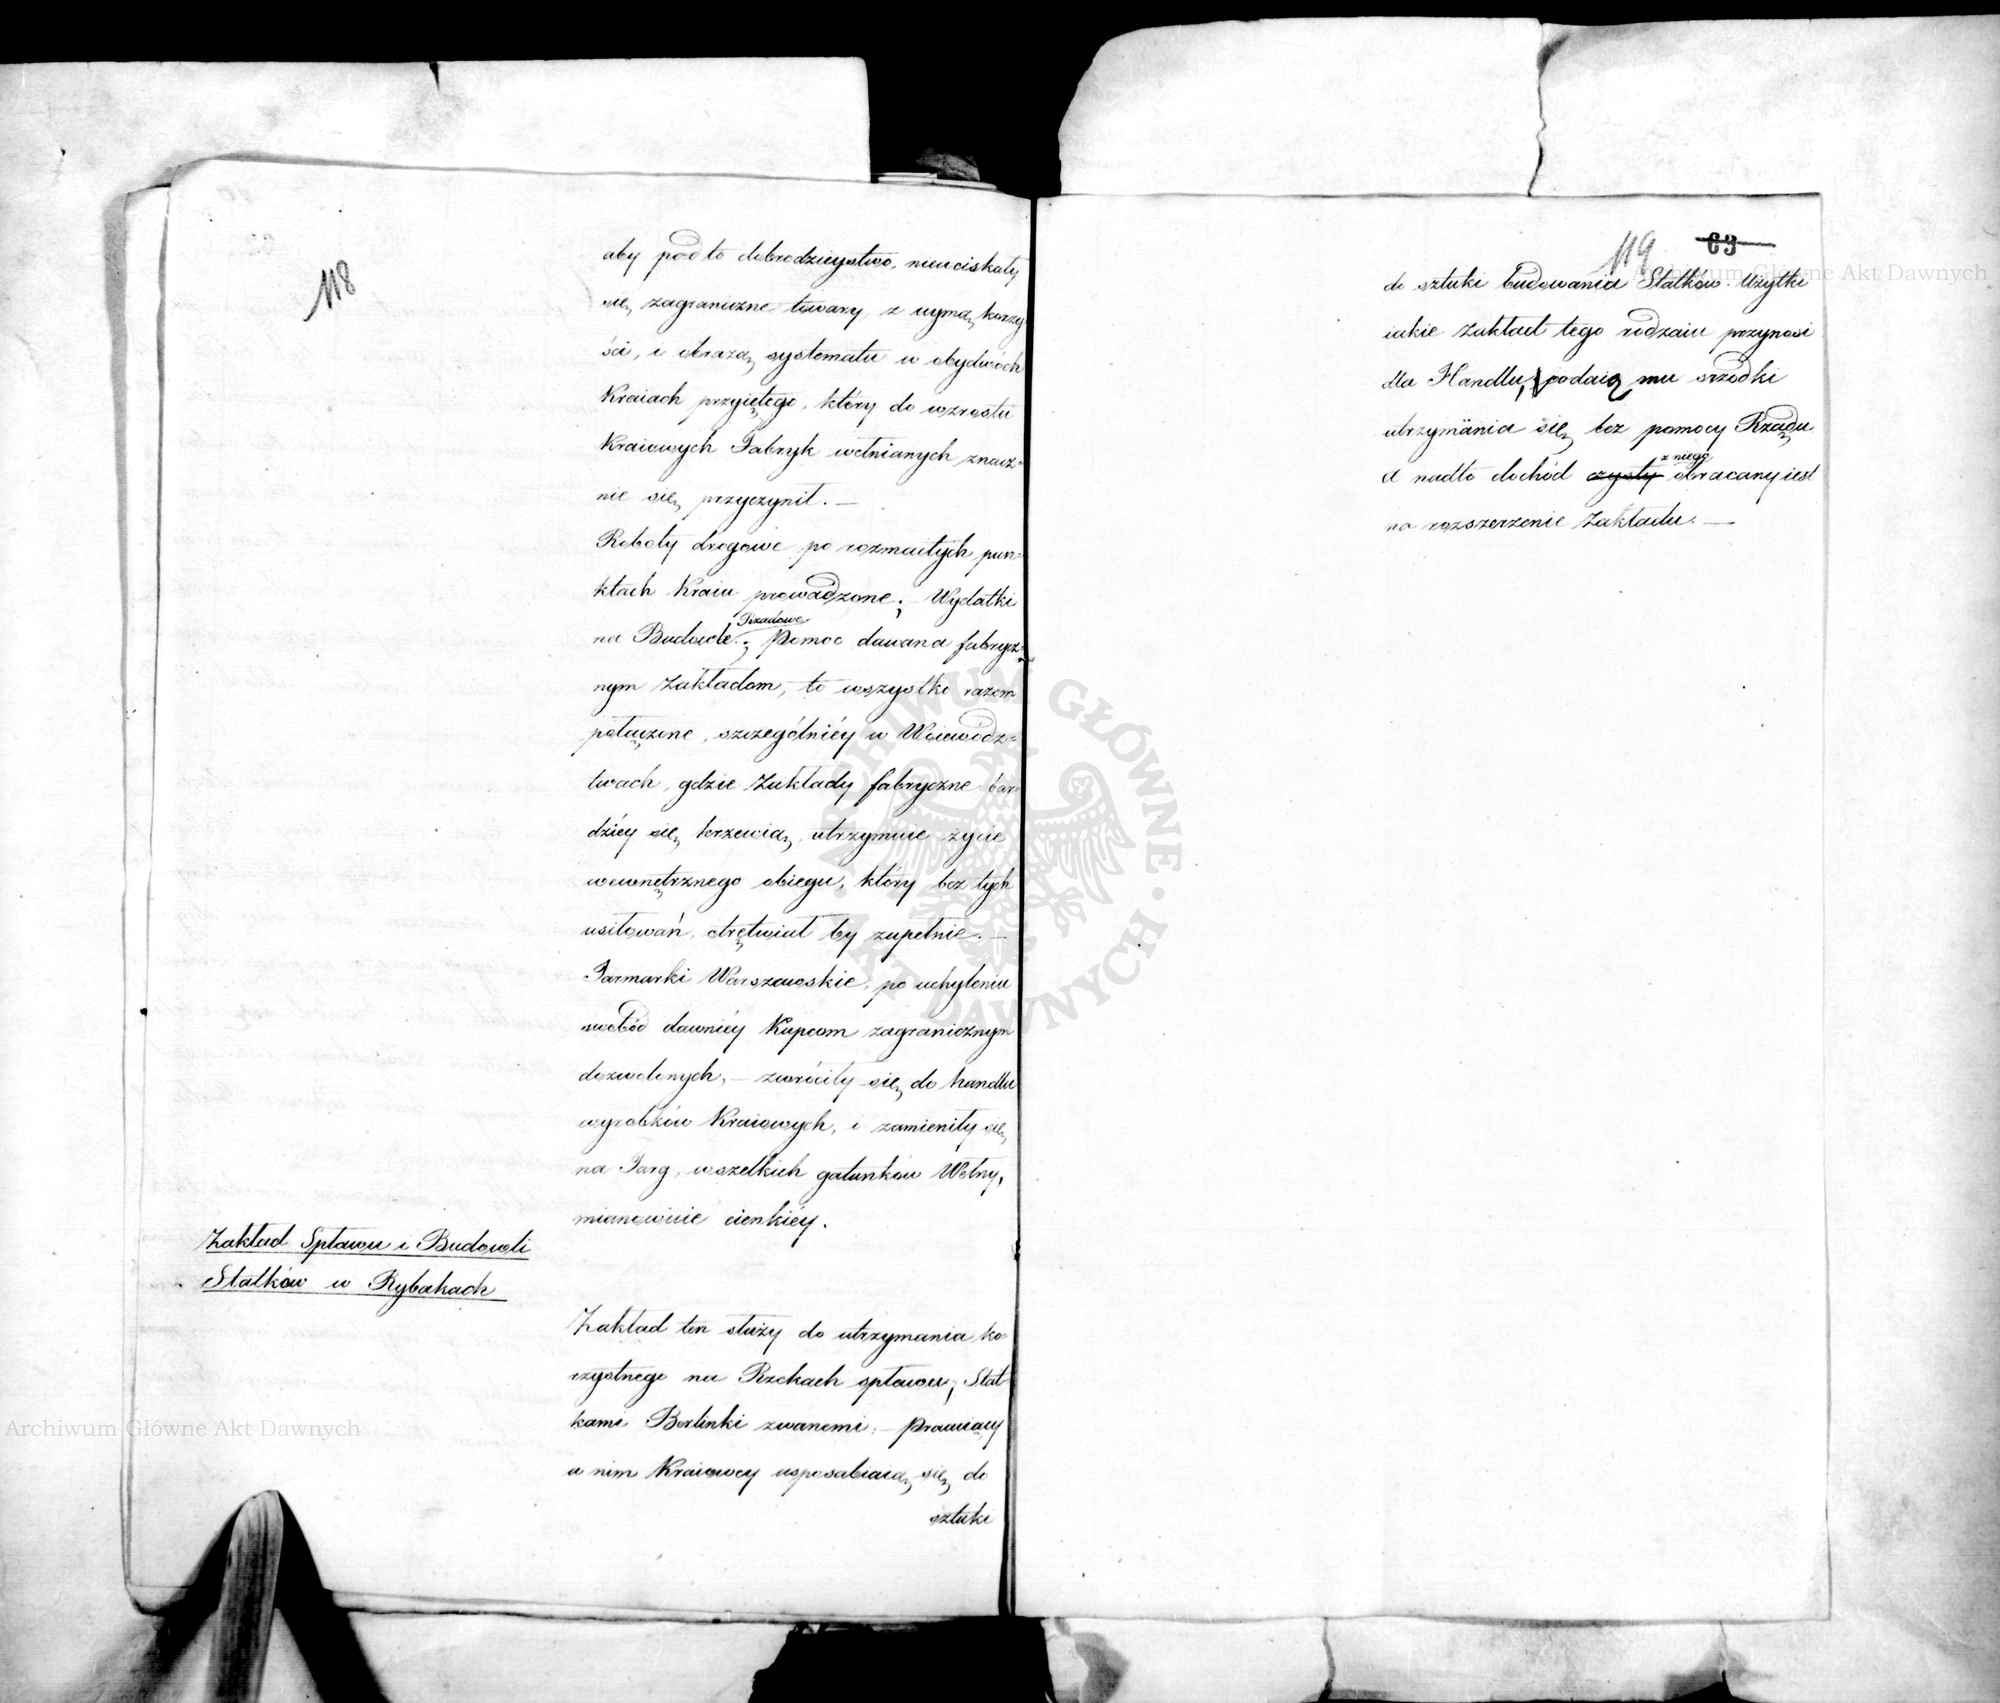 118
aby pod to dobrodzieystwo, nieuciskały
się zagraniczne towary z uymą korzy-
ści, i obrazą systematu w obydwóch
Kraiach przyiętego, który do wzrostu
Kraiowych Fabryk wełnianych znacz-
nie się przyczynił. —
Roboty drogowe po rozmaitych pun-
ktach Kraiu prowadzone; — Wydatki
Rządowe
na Budowle; Pomoc dawana fabrycz-
nym Zakładom, — to wszystko razem
połączone, szczególniéy w Woiewódz-
twach, gdzie Zakłady fabryczne bar-
dziéy się krzewią, utrzymuie życie
wewnętrznego obiegu, który bez tych
usiłowań, odrętwiał by zupełnie. —
Jarmarki Warszawskie, po uchyleniu
swobód dawniéy Kupcom zagranicznym
dozwolonych, — zwróciły się do handlu
wyrobków Kraiowych, i zamieniły się
na Targ, wszelkich gatunków Wełny,
mianowicie cienkiéy.
Zakład Spławu i Budowli
Statków w Rybakach
Zakład ten służy do utrzymania ko-
rzystnego na Rzekach spławu, Stat-
kami Berlinki zwanemi; — Pracuiący
w nim Kraiowcy usposabiaią się do
sztuki
119 63
do sztuki budowania Statków. Użytki
iakie Zakład tego rodzaiu przynosi
dla Handlu, podaią mu srzodki
utrzymania się bez pomocy Rządu
z niego
a nadto dochód czysty obracany iest
na rozszerzenie Zakładu. —
Archiwum Główne Akt Dawnych
Archiwum Główne Akt Dawnych
ARCHIWUM GŁÓWNE · AKT DAWNYCH ·